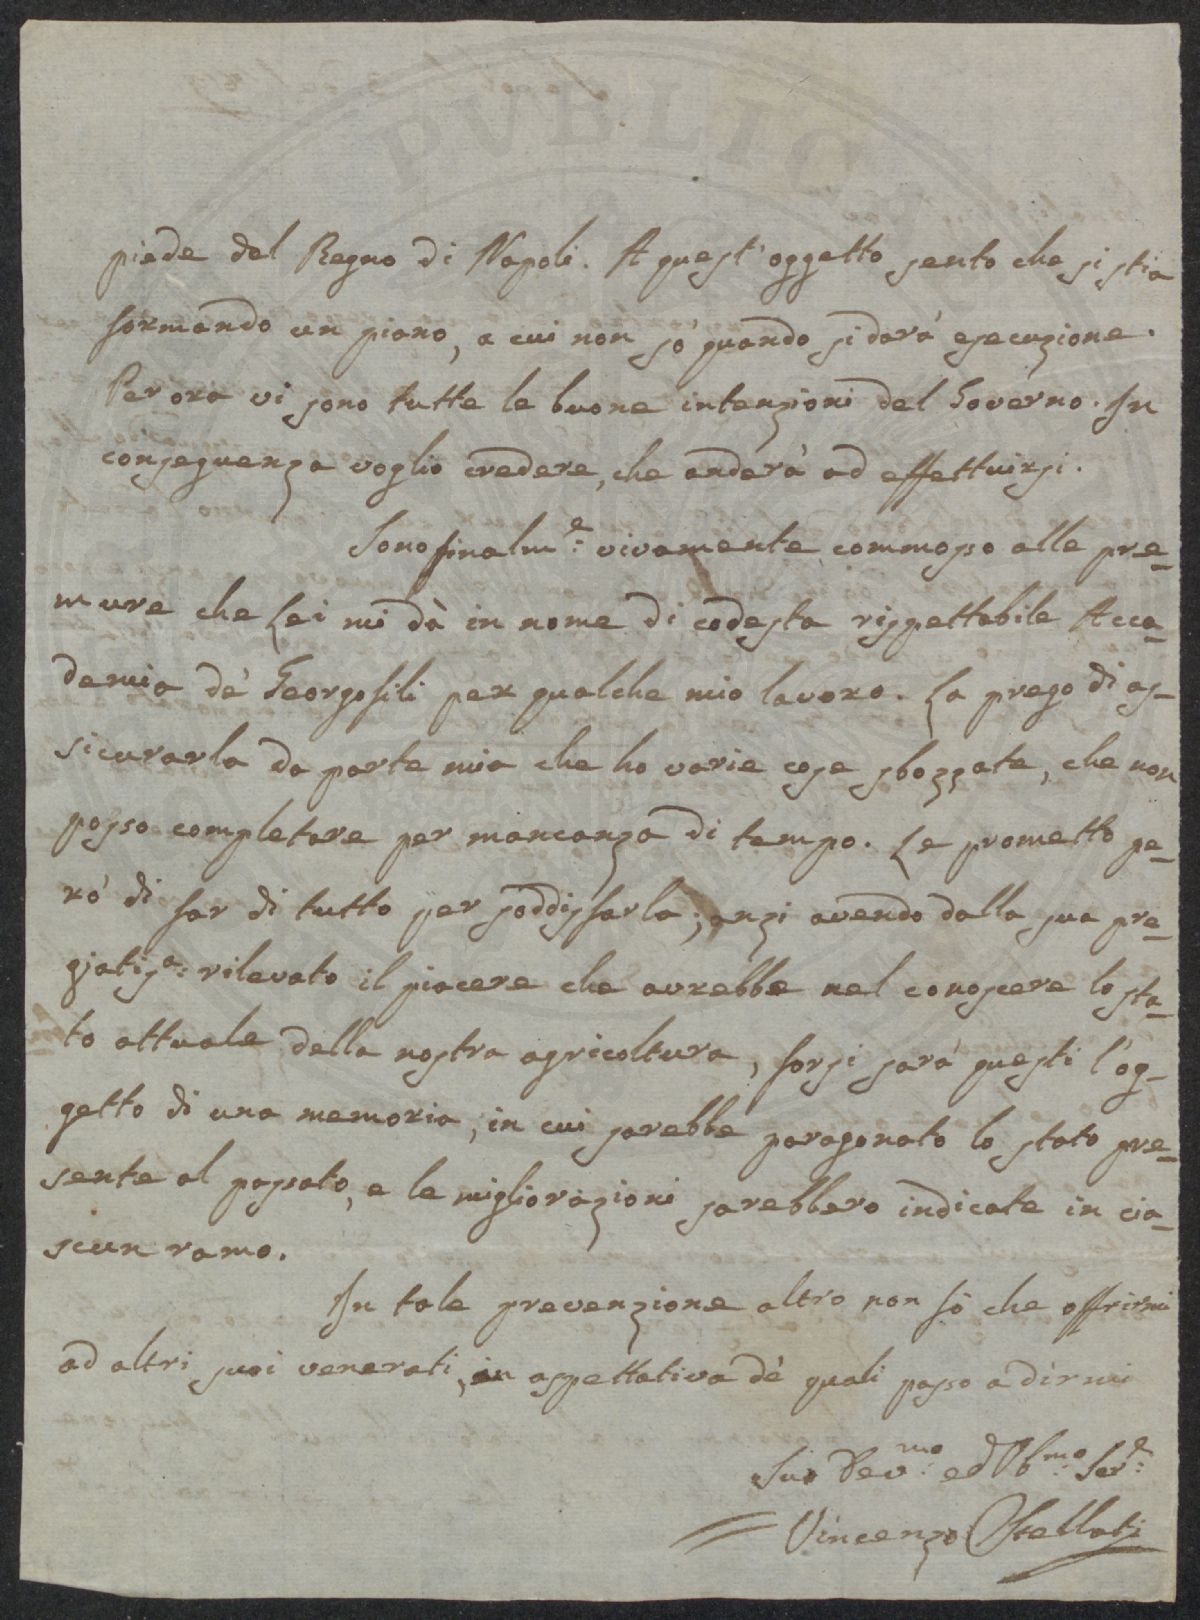 PVBLICA
piede del Regno di Napoli. A quest'oggetto sento che si stia
formando un piano, a cui non sò quando si darà esecuzione.
Per ora vi sono tutte le buone intenzioni del Governo. In
conseguenza voglio credere, che anderà ad effettuirsi.
Sono finalm:e vivamente commosso alle pre=
mure che Lei mi dà in nome di codesta rispettabile Acca=
demia de' Georgofili per qualche mio lavoro. La prego di as=
sicurarla da parte mia che ho varie cose sbozzate, che non
posso completare per mancanza di tempo. Le prometto pe=
rò di far di tutto per soddisfarla; anzi avendo dalla sua pre=
giatis:a rilevato il piacere che avrebbe nel conoscere lo sta=
to attuale della nostra agricoltura, forsi sarà questi l'og=
getto di una memoria, in cui sarebbe paragonato lo stato pre=
sente al passato, e le migliorazioni sarebbero indicate in cia=
scun ramo.
In tale prevenzione altro non sò che offrirmi
ad altri suoi venerati, in aspettativa de' quali passo a dirmi
Suo Dev:mo ed Ob:mo Ser:e
Vincenzo Stellati